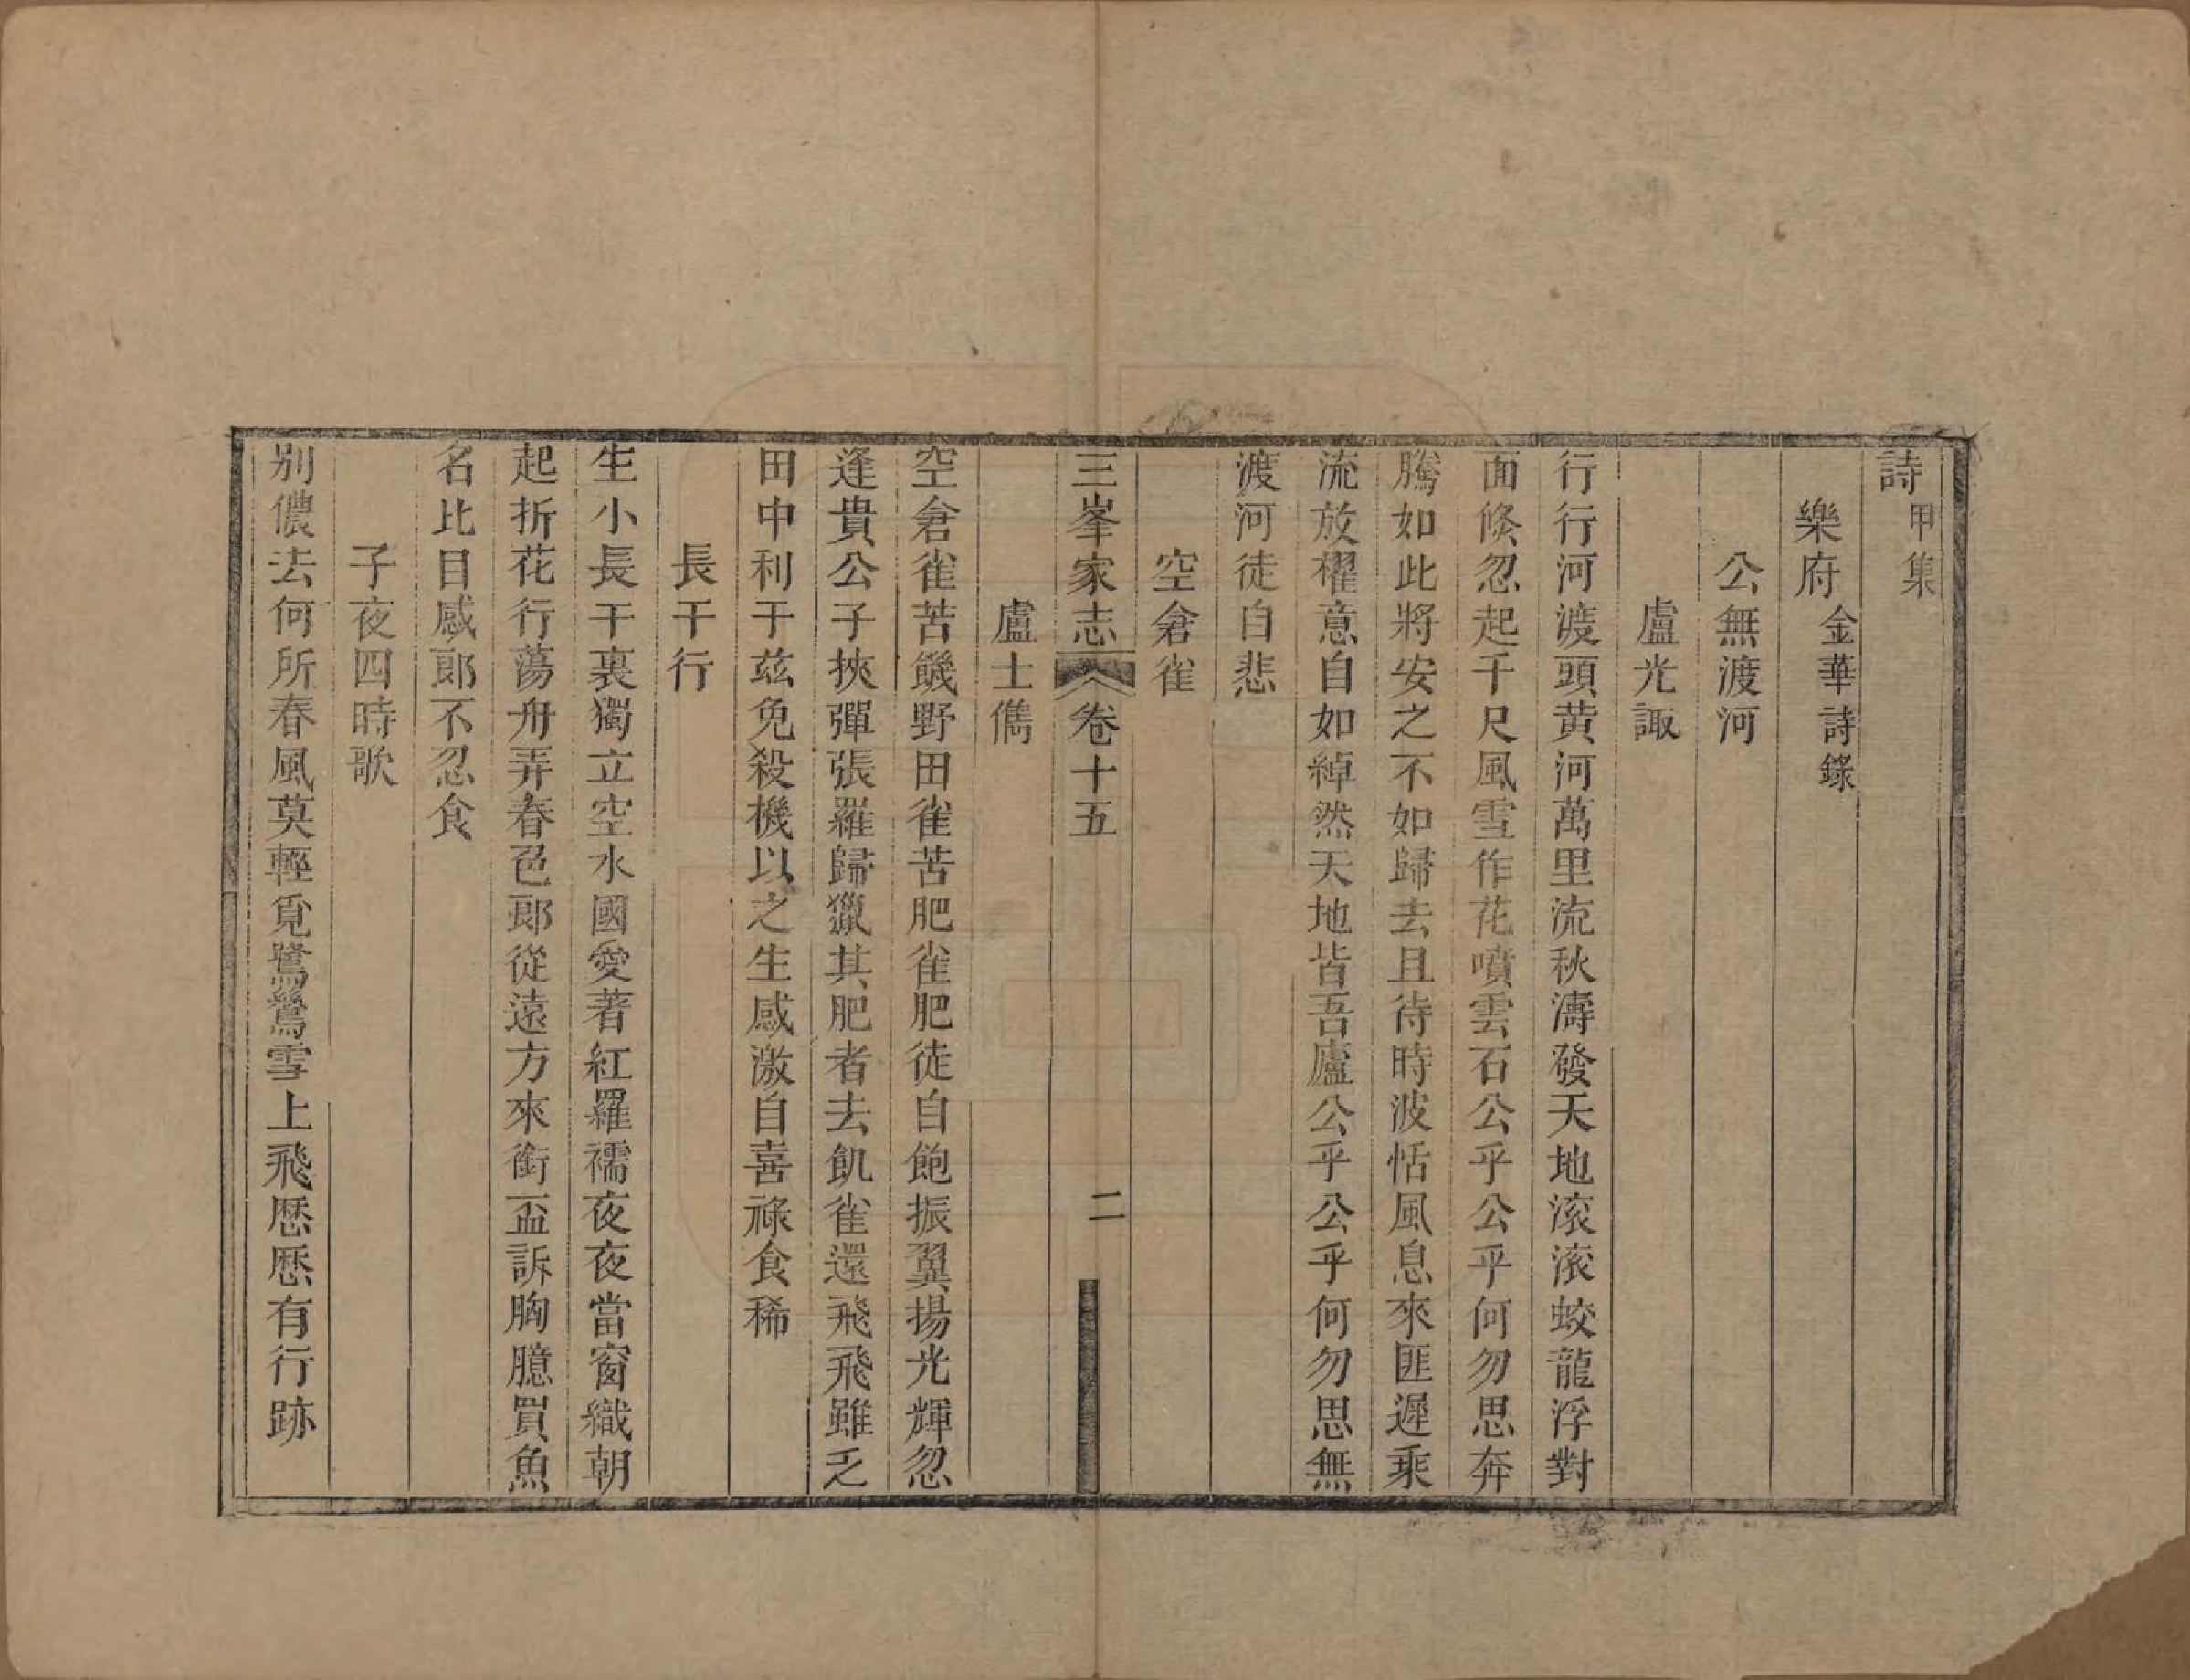 詩甲集
樂府金華詩錄
公無渡河
盧光諏
行行河渡頭黃河萬里流秋濤發天地滚滚蛟龍浮對
面倐忽起千尺風雪作花噴雲石公乎公乎何勿思奔
騰如此將安之不如歸去且待時波恬風息來匪遲乘
流放櫂意自如綽然天地皆吾廬公乎公乎何勿思無
渡河徒自悲
空倉雀
三峯家志 卷十五 二
盧士儁
空倉雀苦饑野田雀苦肥雀肥徒自飽振翼揚光輝忽
逢貴公子挾彈張羅歸獵其肥者去飢雀還飛飛雖乏
田中利于茲免殺機以之生感激自喜祿食稀
長干行
生小長干裏獨立空水國愛著紅羅襦夜夜當窗織朝
起折花行蕩舟弄春色郎從遠方來銜盃訴胸臆買魚
名比目感郎不忍食
子夜四時歌
別儂去何所春風莫輕覓鷺鷥雪上飛歷歷有行跡